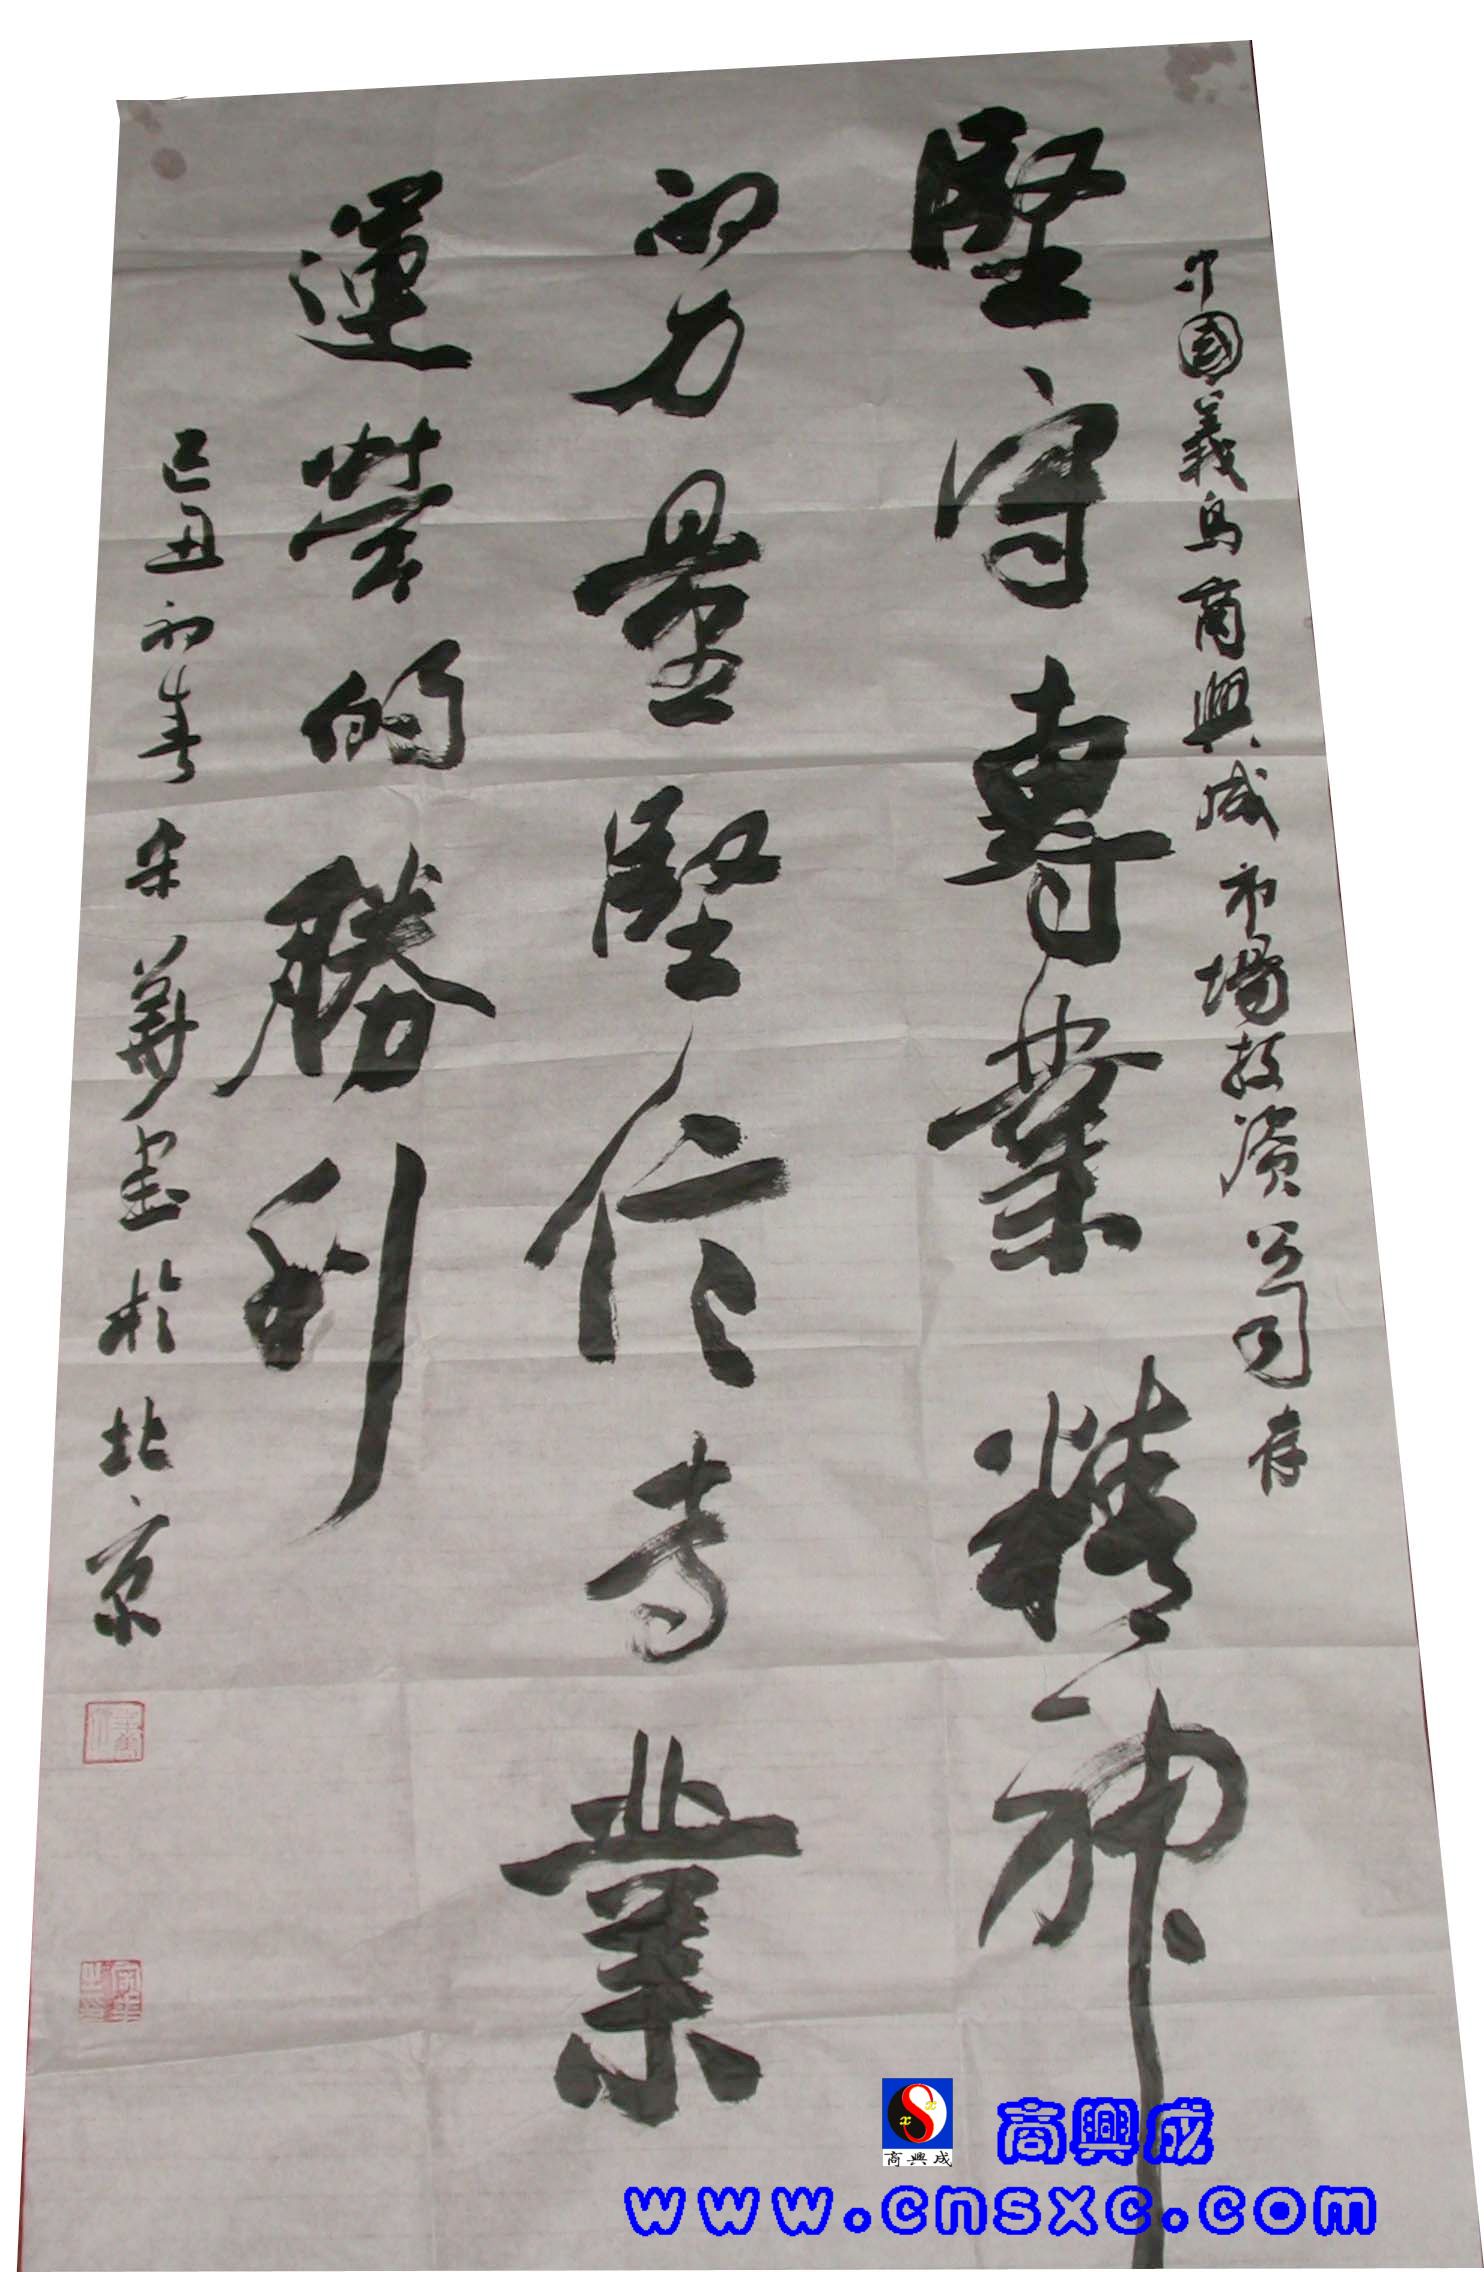 中國義烏商興成市場投資公司存
堅守專業精神
的力量堅信专業
運營的勝利
己丑初春宋華書於北京
商興成
商興成
www.cnsxc.com